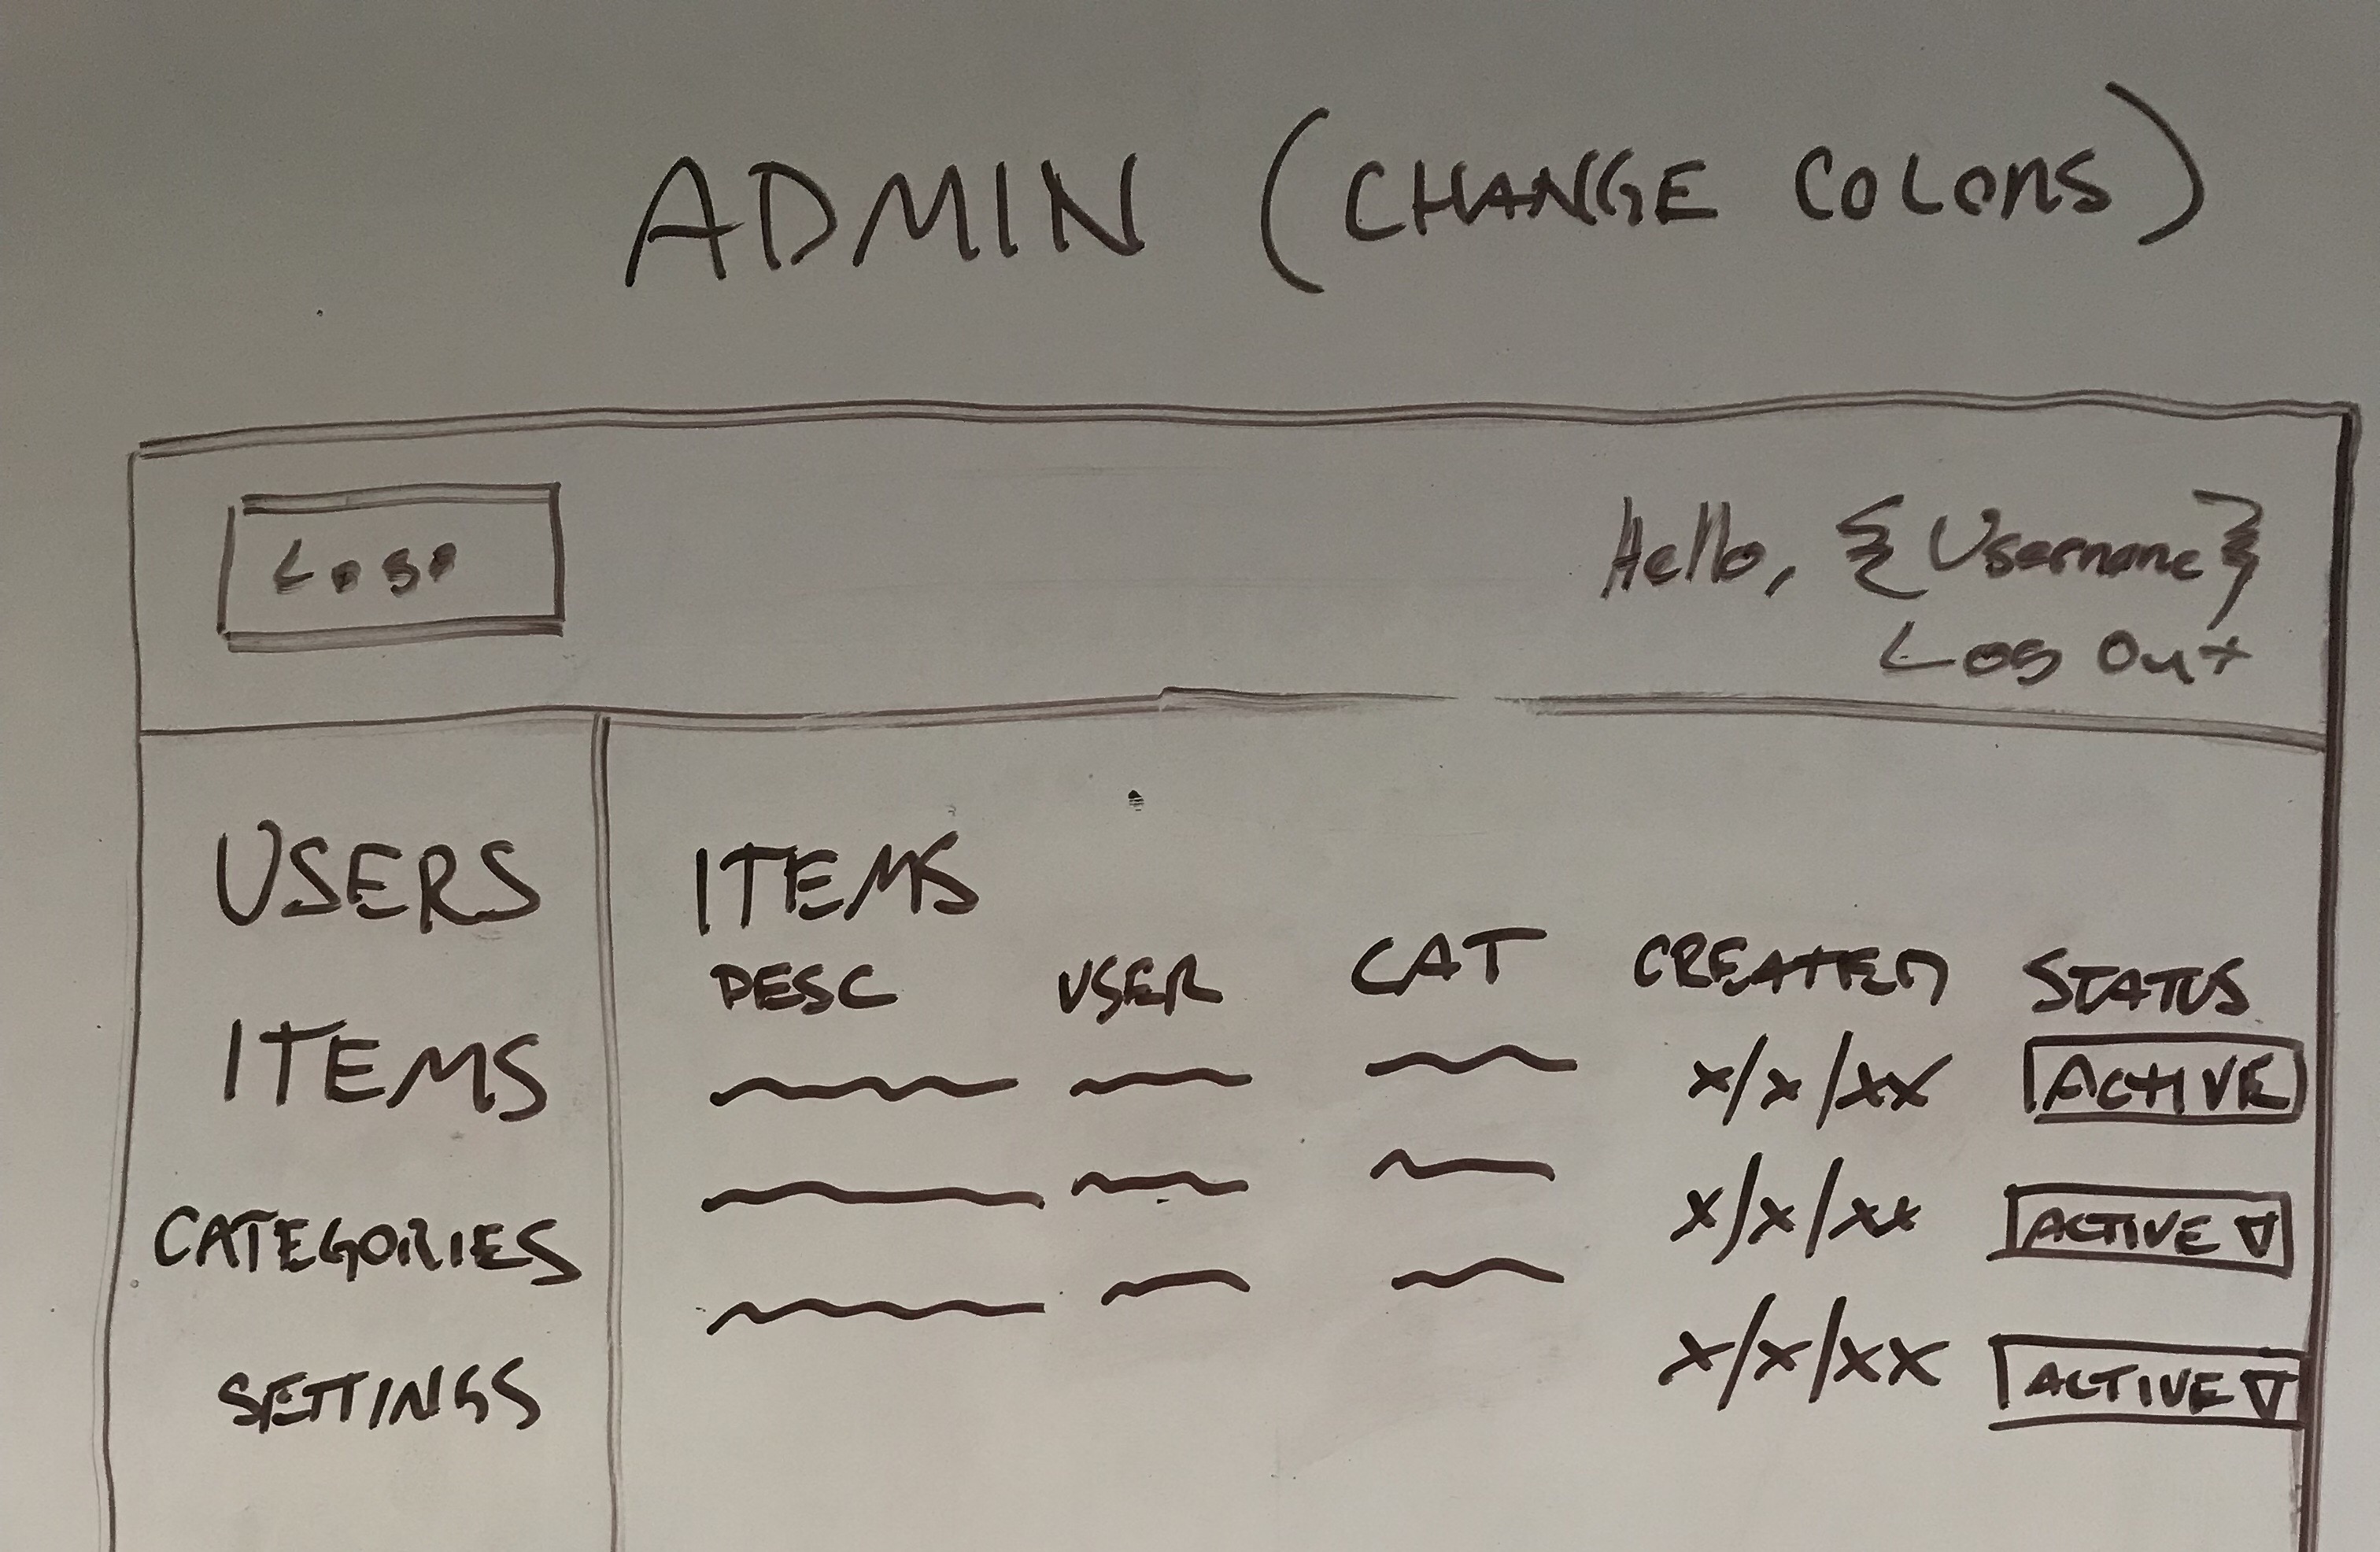 ADMIN (CHANGE COLORS)
Logo
Hello, {Username}
Log Out
USERS
ITEMS
CATEGORIES
SETTINGS
ITEMS
DESC USER CAT CREATED STATUS
x/x/xx ACTIVE
x/x/xx ACTIVE
x/x/xx ACTIVE